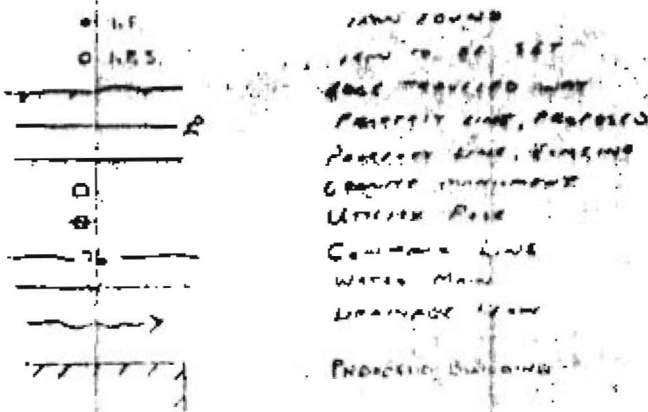 I.F. IRON FOUND
I.B.S. IRON TO BE SET
EDGE TRAVELED WAY
PROPERTY LINE, PROPOSED
PROPERTY LINE, EXISTING
GRANITE MONUMENT
UTILITY POLE
LINE
WATER MAIN
DRAINAGE
PROPOSED BUILDING